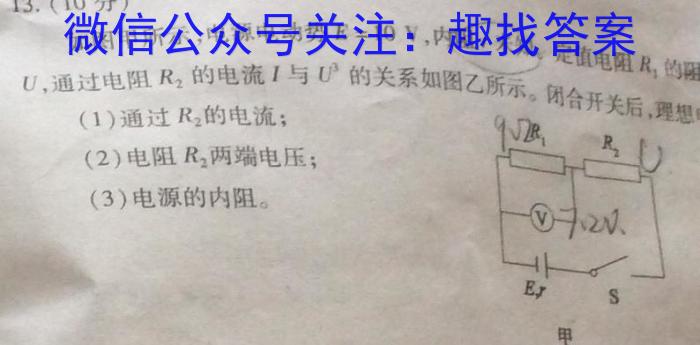 13.(10分)
微信公众号关注：趣找答案
定值电阻 R₁ 的阻
U,通过电阻 R₂ 的电流 I 与 U³ 的关系如图乙所示。闭合开关后,理想
(1)通过 R₂的电流;
(2)电阻 R₂两端电压;
(3)电源的内阻。
9Ω R₁
R₂ U
V 7.2V.
E,r
S
甲